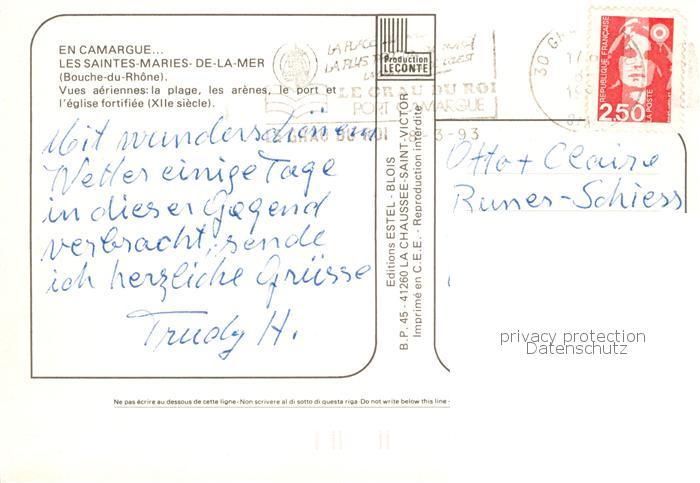 EN CAMARGUE...
LES SAINTES-MARIES-DE-LA-MER
(Bouche-du-Rhône).
Vues aériennes: la plage, les arènes, le port et
l'église fortifiée (XIIe siècle).
Mit wunderschönem
Wetter einige Tage
in dieser Gegend
verbracht, sende
ich herzliche Grüsse
Trudy H.
Production
LECONTE
LE GRAU DU ROI
PORT CAMARGUE
LE GRAU DU ROI 8-3-93
Editions ESTEL - BLOIS
B.P. 45 - 41260 LA CHAUSSÉE-SAINT-VICTOR
Imprimé en C.E.E. - Reproduction interdite
30
REPUBLIQUE FRANÇAISE
2,50
LA POSTE
Otto + Claire
Runes-Schiess
privacy protection
Datenschutz
Ne pas écrire au dessous de cette ligne - Non scrivere al di sotto di questa riga - Do not write below this line -